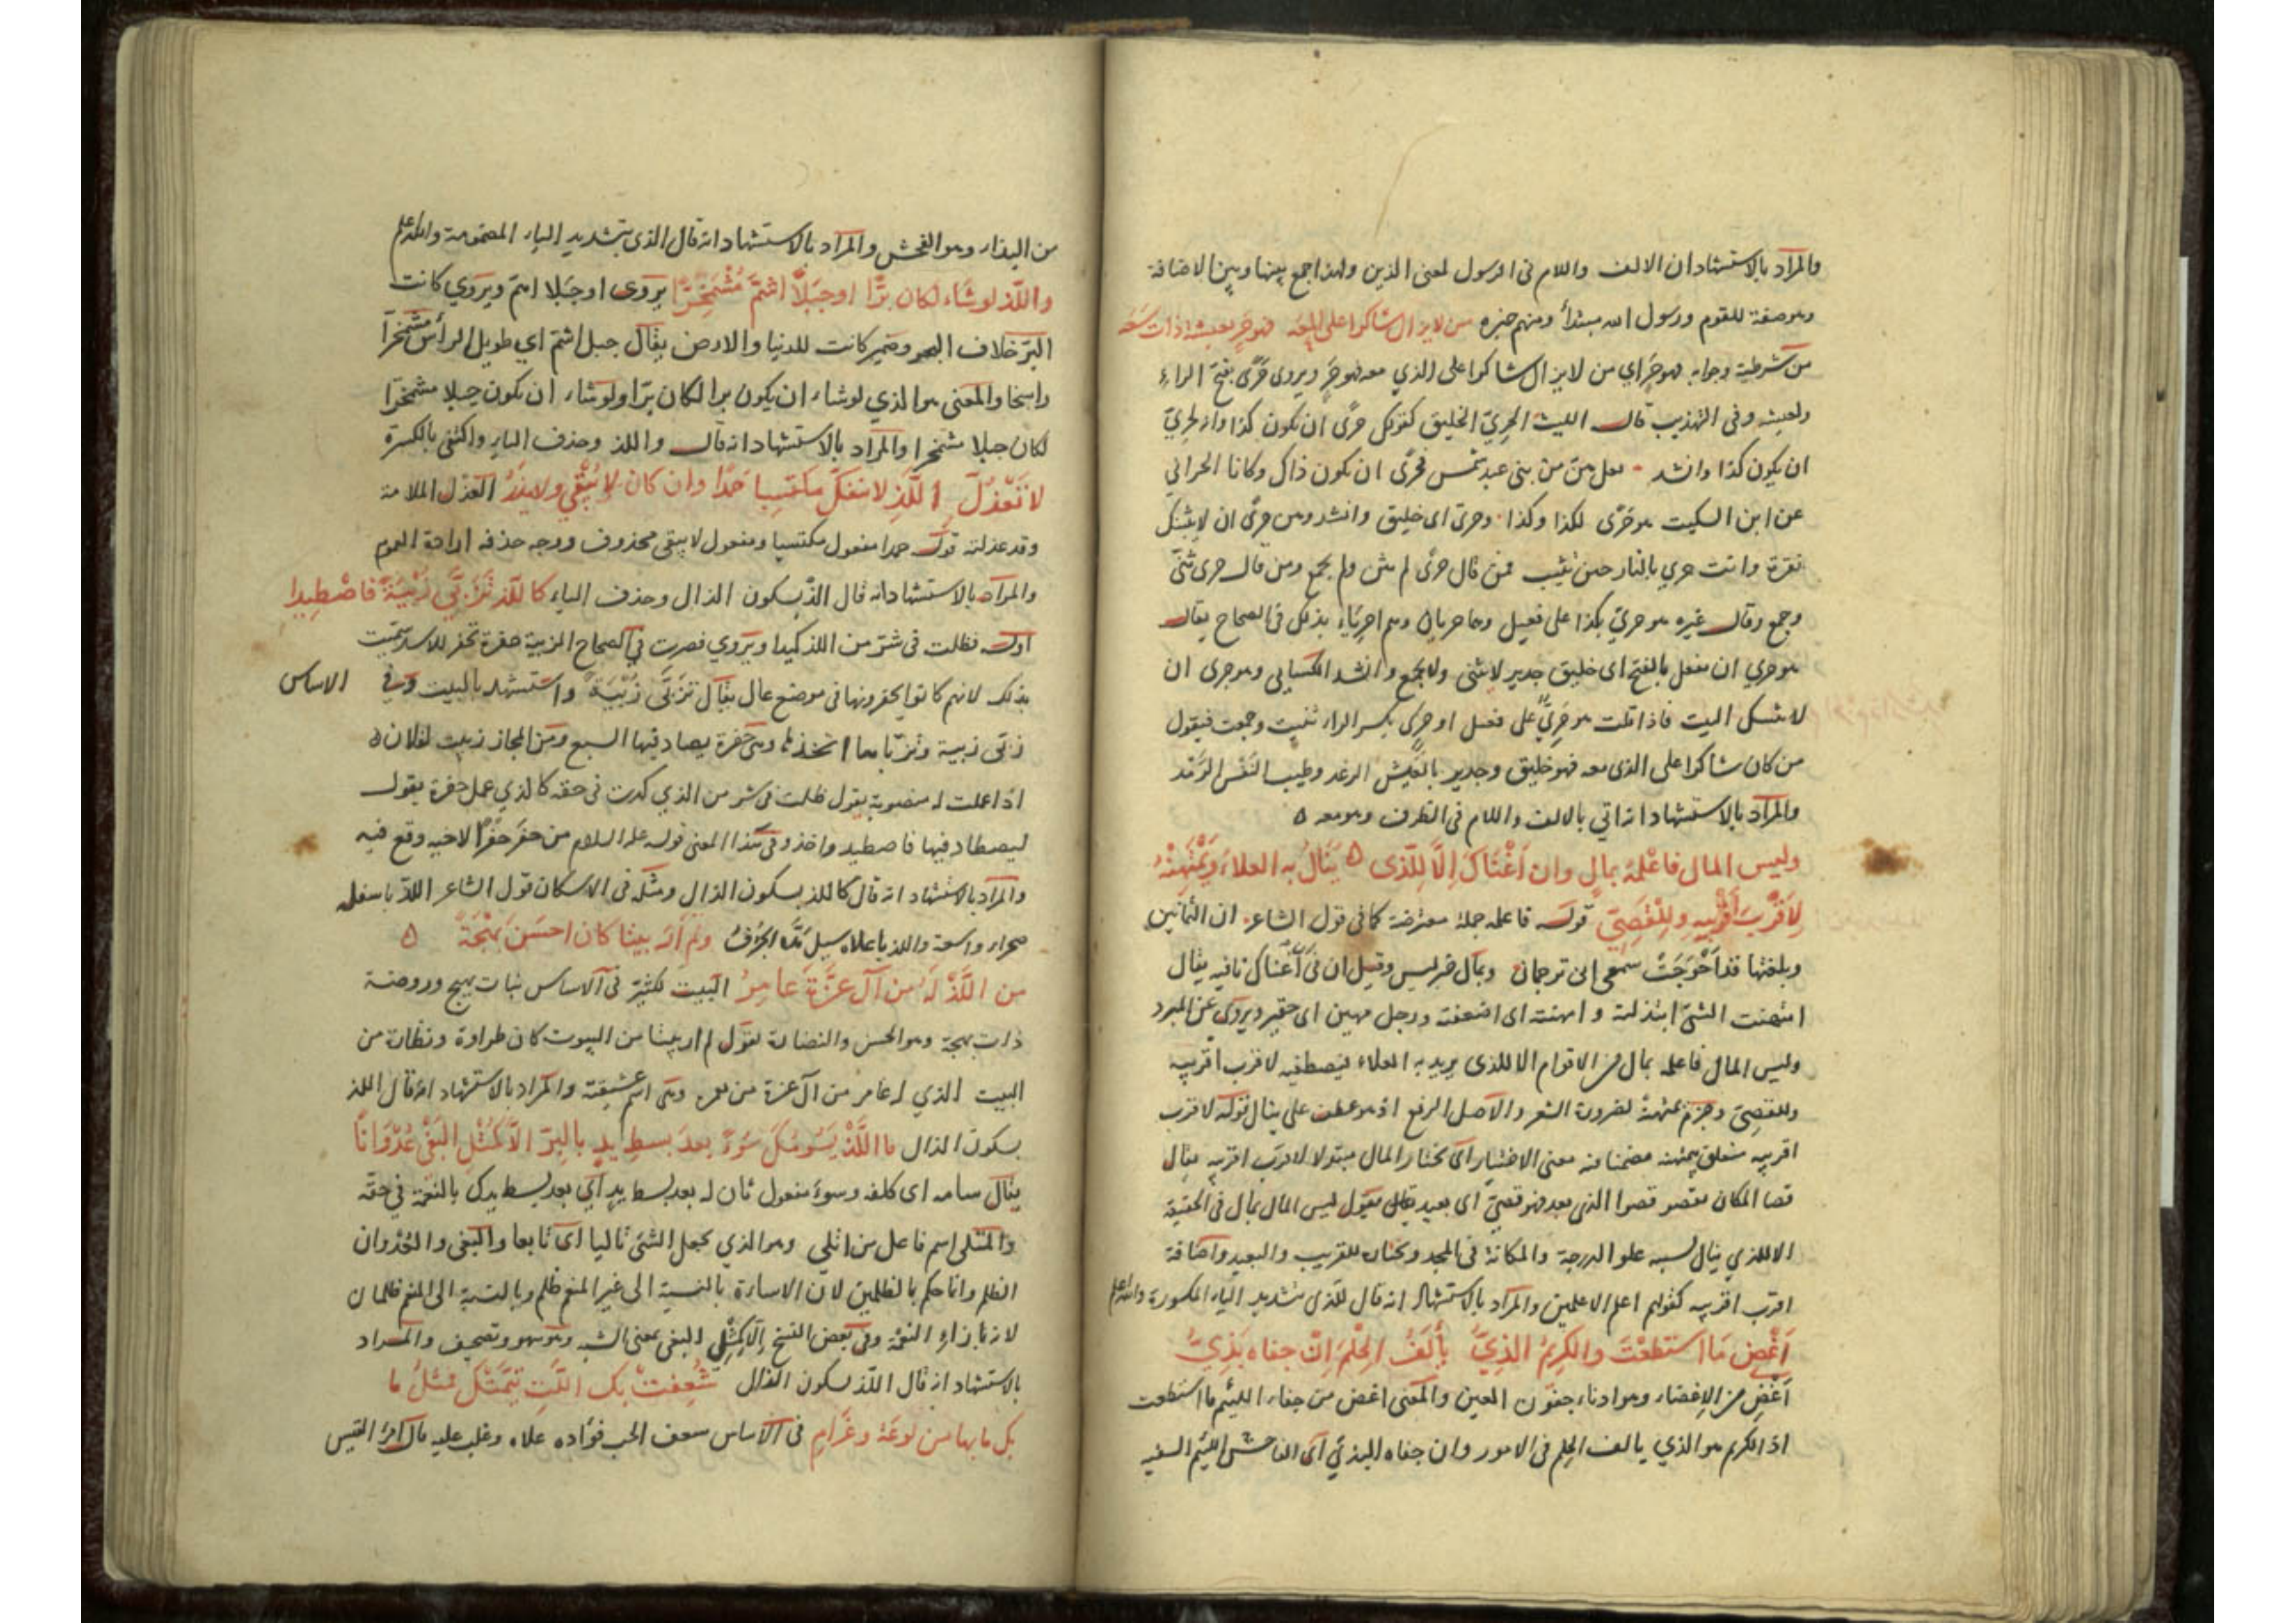 والمراد بالاستشهاد ان الالف واللام فى الرسول لمعنى الذين ولهذا جمع بينها وبين الاضافة
وهو صفة للقوم ورسول الله مبتدأ ومنهم خبره من لا يزال شاكرا على المعه فهو حر بعيشة ذات سعه
من شرطية وجوابه فهو حَرٍ اي من لا يزال شاكرا على الذي معه فهو حَرٍ ويروى حَرًى بفتح الراء
وفى التهذيب قال الليث الحريّ الخليق كقولك حرًى ان يكون كذا وانه لحريّ
ان يكون كذا وانشد من بنى عبد شمس فحرًى ان يكون ذاك وكانا الحرانى
عن ابن السكيت هو حَرًى لكذا وكذا وحرى اى خليق وانشد وهن حرًى ان لا يثبنك
نقرة وانت حري بالنار حين تثيب فمن قال حرًى لم يثن ولم يجمع ومن قال حرى ثنّى
وجمع وقال غيره هو حريّ بكذا على فعيل وهما حريان وهم احرياء بذلك فى الصحاح يقال
هو حري ان يفعل بالفتح اى خليق جدير لا يثنى ولا يجمع وانشد الكسايى وهو حرى ان
لا يثبنك البيت فاذا قلت هو حَرِيٌّ على فعيل او حَرٍ بكسر الراء ثنيت وجمعت فيقول
من كان شاكرا على الذى معه فهو خليق وجدير بالعيش الرغد وطيب النَفَس الرَغد
والمراد بالاستشهاد انه اتي بالالف واللام فى الظرف وهو معه ه
وليس المال فاعْلمهُ بمالٍ وان اَغْناكَ اِلَّا لِلَّذِى ه يَنالُ به العلاءَ وَيَمْتَهِنْهُ
لِاَقْربِ اَقْرَبِيهِ ولِلْقَصِيِّ قوله فاعلمه جملة معترضة كما فى قول الشاعر ان الثمانين
وبلغتها قد اَحْوَجَتْ سمعى الى ترجمان وبمال خبر ليس وقيل ان فى ان اغناك نافيه يقال
امتهنت الشئ ابتذلته و امهنته اى اضعفته ورجل مهين اى حقير ويروى عن المبرد
وليس المال فاعلمه بمال من الاقوام الا للذى يريد به العلاء فيصطفيه لاقرب اقربيه
وللقصِىّ وجزم يمتهنهُ لضرورة الشعر والاصل الرفع اذ هو عطف على ينال قوله لاقرب
اقربيه متعلق بيمتهنه مضمنا فيه معنى الاختيار اى يختار المال مبتذلا لاقرب اقربيه يقال
قصا المكان يقصو قصوا الذى بعد فهو قصىّ اى بعيد يقول ليس المال بمال فى الحقيقة
الا للذي ينال بسببه علو الدرجة والمكانة فى المجد ويختاره للقريب والبعيد واضافة
اقرب اقربيه كقولهم اعلم الاعلمين والمراد بالاستشهاد انه قال للذىّ بتشديد الياء المكسورة والله اعلم
اَغْضِ مَا اسْتَطَعْتَ والكرِيمُ الذِيُّ يأْلَفُ الحِلْمَ اِنْ جفاه بَذِيُّ
اَغْضِ من الاِغضاء وهو ادناء جفون العين والمعنى اغض من جفاء اللئيم ما استطعت
اذ الكريم هو الذي يالف الحلم فى الامور وان جفاه البذئ اى الفاحش اللئيم السفيه
من البذاء وهو الفحش والمراد بالاستشهاد انه قال الذىّ بتشديد الياء المضمومة والله اعلم
واللّذِ لو شَاء لكان بَرًّا او جبَلاً اَشَمَّ مُشْمَخِرًّا يروى او جبَلا اشم ويروي كانت
البَرّ خلاف البحر وضمير كانت للدنيا والارض يقال جبل اشم اي طويل الراس مشمخرّا
راسخا والمعنى هو الذي لو شاء ان يكون برا لكان برّا ولو شاء ان يكون جبلا مشمخرّا
لكان جبلا مشمخرا والمراد بالاستشهاد انه قال واللذ وحذف الياء واكتفى بالكسرة
لا تَعْذُل الَّلذِ لا ينفكّ مكتسِبا حَمْدًا وان كان لا يُبْقِي ولا يذَرُ العَذْل الملامة
وقد عذلته قوله حمدا مفعول مكتسبا ومفعول لا يبقى محذوف ووجه حذفه ارادة العموم
والمراد بالاستشهاد انه قال الذْ بسكون الذال وحذف الياء كاللّذ تَزَبَّي زُبْيَةً فاصْطِيدا
اوله فظلت فى شرّ من اللذ كيدا ويروي فصرت فى الصحاح الزبية حفرة تحفر للاسد سميت
بذلك لانهم كانوا يحفرونها فى موضع عال يقال تزبّى زبيةً واستشهد بالبيت وفي الاساس
زبى زبية وتزبّاها اتخذها وهى حفرة يصاد فيها السبع ومن المجاز زبيت لفلان ه
اذا عملت له منصوبة يقول ظلت فى شر من الذي كدت فى حقه كالذي عمل حفرة يقول
ليصطاد فيها فاصطيد واخذ وفى هذا المعنى قوله عليه السلام من حفر حفرًا لاخيه وقع فيه
والمراد بالاستشهاد انه قال كاللذ بسكون الذال ومثله فى الاسكان قول الشاعر اللذْ باسفله
صحراء واسعة واللذ باعلاه سيل مدّه الجرُف ولم اَرَ بيتا كان احسَن بَهْجَةً ه
من اللَّذْ لهُ من آل عزَّة عامِرُ البيت لكثير فى الاساس نبات بهيج وروضة
ذات بهجة وهو الحسن والنضارة يقول لم ار بيتا من البيوت كان طراوة ونضارة من
البيت الذي له عامر من آل عزة من وهى اسم عشيقته والمراد بالاستشهاد انه قال اللذ
بسكون الذال ما اللّذْ يَسُومُكَ سوْءً بعدَ بسطِ يدٍ بالبِرّ الاَّ كَمُثْلِ البَغْىَ عُدْوَانًا
يقال سامه اى كلفه وسوءً مفعول ثان له بعد بسط يدٍ اي بعد بسط يدك بالنعمة في حقه
والمتلى اسم فاعل من اتلي وهو الذي يجعل الشئ تاليا اى تابعا والبغى والعُدْوان
الظلم وانما حكم بالظلمين لان الاساءة بالنسبة الى غير المنعم ظلم وبالنسبة الى المنعم ظلمان
لانها بازاء النعمة وفى بعض النسخ اِلّا كَمِثْلِ البغى بمعنى الشبه وهو سهو وتصحيف والمراد
بالاستشهاد انه قال اللذْ بسكون الذال شُعِفتْ بك اللَّتِ تيَّمَتْكَ فمثلُ ما
بك ما بها من لوعَةٍ وغَرامِ فى الاساس شعف الحب فؤاده علاه وغلب عليه قال امرؤ القيس